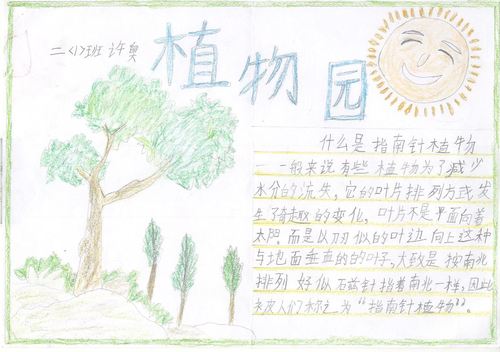 二<1>班 许奥
植物园
什么是指南针植物
一般来说有些植物为了减少
水分的流失,它的叶片排列方式发
生了有趣的变化,叶片不是平面向着
太阳,而是以刀似的叶边向上这种
与地面垂直的的叶子,大致是按南北
排列好似石兹针指着南北一样,因此
人们称之为“指南针植物”。